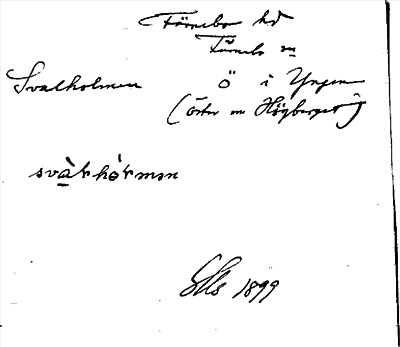 Färnebo hd
Färnebo sn
Svalholmen Ö i Yngen
(öster om Högberget)
svàrhòrmən
1899